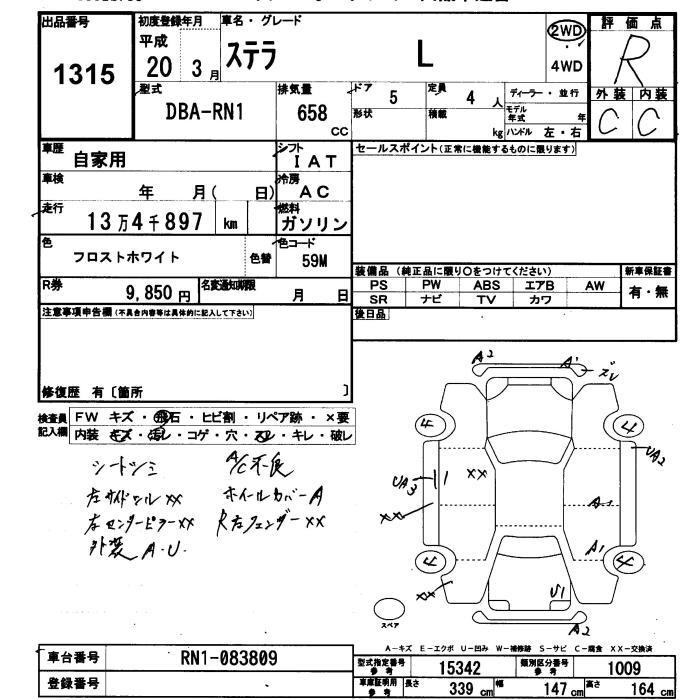 出品番号 初度登録年月 車名・グレード 評価点
1315 平成 20 3月 ステラ L 2WD 4WD R
型式 排気量 ドア 5 定員 4人 ディーラー・並行 外装 内装
DBA-RN1 658 CC 形状 積載 kg モデル年式 年 ハンドル 左・右 C C
車歴 自家用 シフト IAT セールスポイント(正常に機能するものに限ります)
車検 年 月( 日) 冷房 AC
走行 13万4千897 km 燃料 ガソリン
色 フロストホワイト 色替 色コード 59M
装備品(純正品に限り○をつけてください) 新車保証書
R券 9,850円 名変通知期限 月 日 PS PW ABS エアB AW 有・無
SR ナビ TV カワ
注意事項申告欄(不具合内容等は具体的に記入して下さい) 後日品
修復歴 有〔箇所 〕
検査員記入欄 FW キズ・飛石・ヒビ割・リペア跡・×要
内装 キズ・汚レ・コゲ・穴・スレ・キレ・破レ
シートシミ A/C不良
左サイドシル×× ホイールカバーA
左センターピラー×× R左フェンダー××
外装 A.U.
A2 A1 ズレ
4 4
UA3 ×× UA2
×× A1
A1
4 4
×× U1
スペア A2
A-キズ E-エクボ U-凹み W-補修跡 S-サビ C-腐食 XX-交換済
車台番号 RN1-083809 型式指定番号 参考 15342 類別区分番号 参考 1009
登録番号 車庫証明用 参考 長さ 339 cm 幅 147 cm 高さ 164 cm